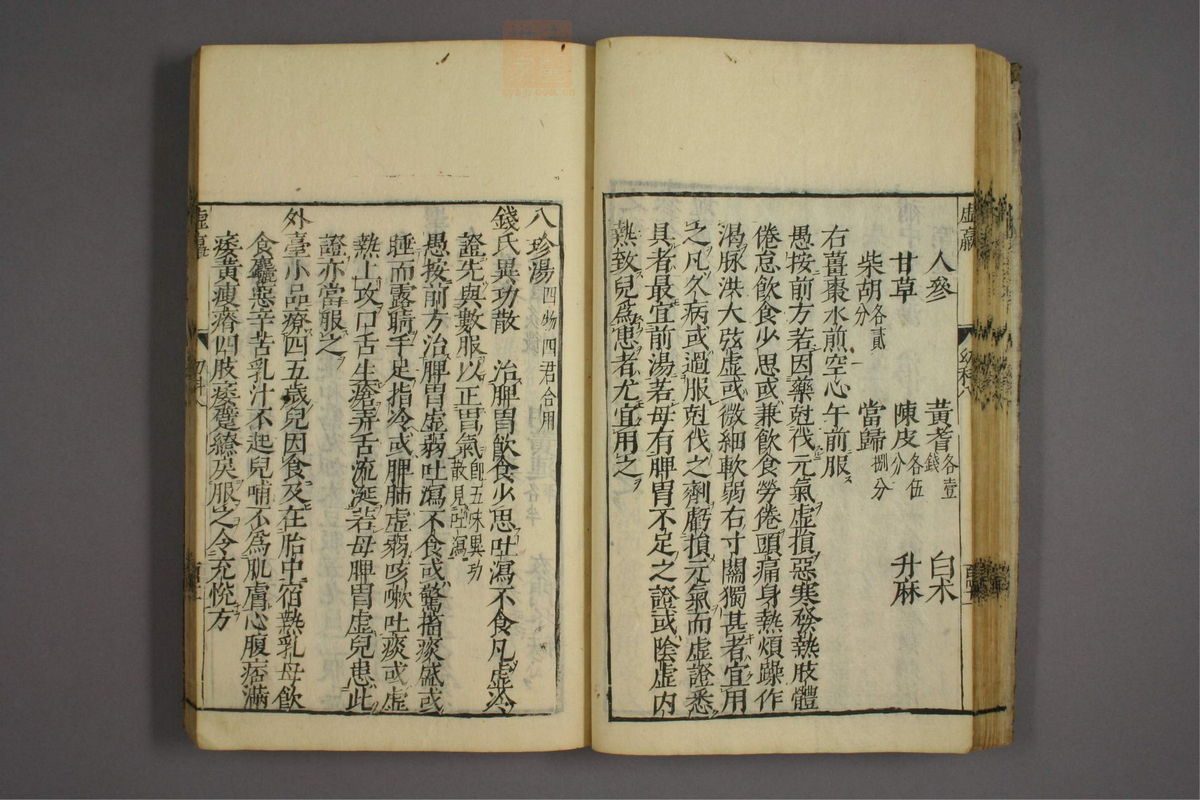 虛羸
人參 黃耆各壹錢 白朮
甘草 陳皮各伍分 升麻
柴胡各貳分 當歸捌分
右薑棗水煎空心午前服
愚按前方若因藥尅伐元氣虛損惡寒發熱肢體
倦怠飲食少思或兼飲食勞倦頭痛身熱煩躁作
渴脉洪大弦虛或微細軟弱右寸關獨甚者宜用
之凡久病或過服尅伐之劑虧損元氣而虛證悉
具者最宜前湯若母有脾胃不足之證或陰虛内
熱致兒爲患者尤宜用之
八珍湯四物四君合用
錢氏異功散 治脾胃飲食少思吐瀉不食凡虛冷
證先與數服以正胃氣卽五味異功散見吐瀉
愚按前方治脾胃虛弱吐瀉不食或驚搐痰盛或
睡而露睛手足指冷或脾肺虛弱咳嗽吐痰或虛
熱上攻口舌生瘡弄舌流涎若母脾胃虛兒患此
證亦當服之
外臺小品療四五歲兒因食及在胎中宿熱乳母飲
食麤惡辛苦乳汁不起兒哺不爲肌膚心腹痞滿
痿黃瘦瘠四肢痿躄繚戾服之令充悅方
虛羸 幼科八